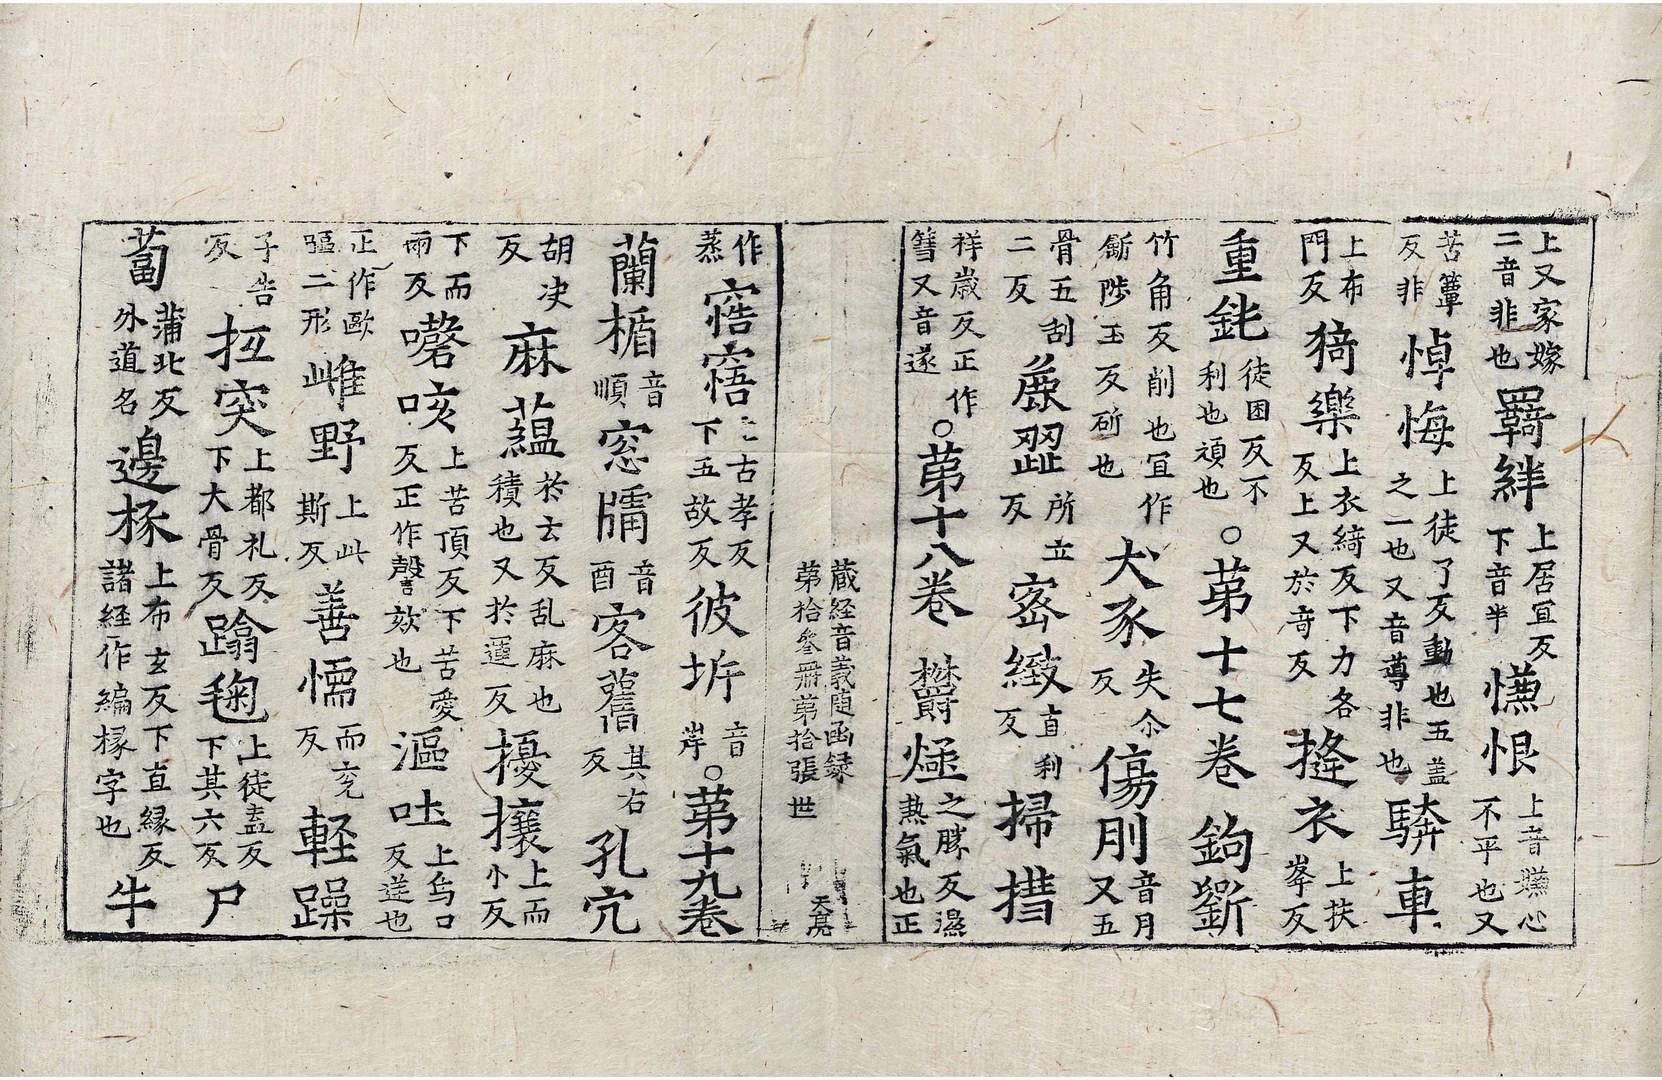 上又家嫁二音非也羈絆上居宜反下音半㦓恨上音嫌心不平也又
苦簟反非悼悔上徒了反動也五盖之一也又音導非也驎車
上布門反猗樂上衣綺反下力各反上又於奇反㨹衣上扶峯反
重鈋徒困反不利也頑也○苐十七卷 鉤斵
竹角反削也冝作斸陟玉反斫也犬豕失尒反傷刖音月又五
骨五刮二反麁澀所立反宻緻直利反掃㨮
祥歳反正作篲又音遂○苐十八卷 欝烝之勝反湯熱氣也正
藏経音義随函録
苐拾叄冊苐拾張 世
作蒸窹寤上古孝反下五故反彼坼音岸○苐十九卷
蘭楯音順窓牖音酉客舊其右反孔穴
胡决反麻蕴於云反乱麻也積也又於運反擾攘上而小反
下而兩反㘐咳上苦頂反下苦愛反正作謦欬也漚吐上烏口反送也
正作歐嘔二形雌野上此斯反善愞而兖反輕躁
子告反抂突上都礼反下大骨反蹹毱上徒盍反下其六反尸
蔔蒲北反外道名邊椓上布玄反下直縁反諸経作編椽字也牛